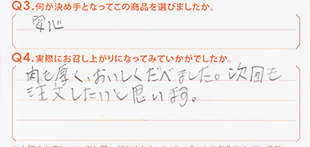 Q3.何が決め手となってこの商品を選びましたか。
安心
Q4.実際にお召し上がりになってみていかがでしたか。
肉も厚く、おいしくだべました。次回も
注文したいと思います。